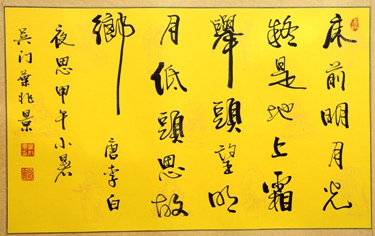 床前明月光
疑是地上霜
舉頭望明
月低頭思故
鄉 唐李白
夜思甲午小暑
吳门葉兆景